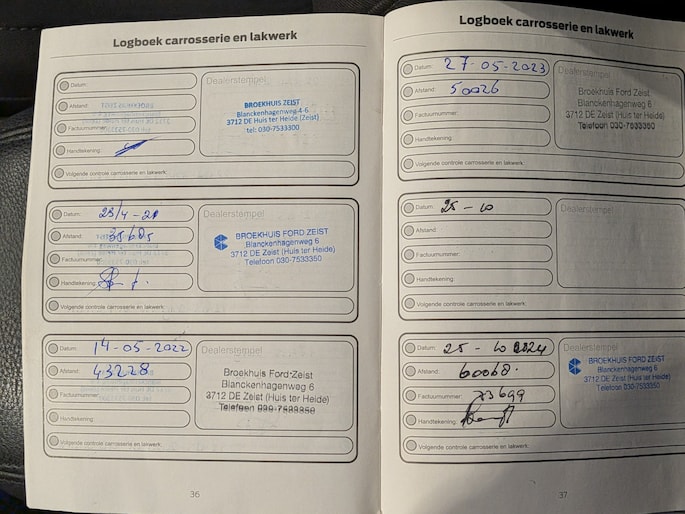 Logboek carrosserie en lakwerk
Datum:
Afstand:
Factuurnummer:
Handtekening:
Volgende controle carrosserie en lakwerk:
Dealerstempel
BROEKHUIS ZEIST
Blanckenhagenweg 4-6
3712 DE Huis ter Heide (Zeist)
tel: 030-7533300
Datum: 23/4-21
Afstand: 35605
Factuurnummer:
Handtekening:
Volgende controle carrosserie en lakwerk:
Dealerstempel
BROEKHUIS FORD ZEIST
Blanckenhagenweg 6
3712 DE Zeist (Huis ter Heide)
Telefoon 030-7533350
Datum: 14-05-2022
Afstand: 43228
Factuurnummer:
Handtekening:
Volgende controle carrosserie en lakwerk:
Dealerstempel
Broekhuis Ford Zeist
Blanckenhagenweg 6
3712 DE Zeist (Huis ter Heide)
Telefoon 030-7533350
36
Logboek carrosserie en lakwerk
Datum: 27-05-2023
Afstand: 50026
Factuurnummer:
Handtekening:
Volgende controle carrosserie en lakwerk:
Dealerstempel
Broekhuis Ford Zeist
Blanckenhagenweg 6
3712 DE Zeist (Huis ter Heide)
Telefoon 030-7533350
Datum: 25-10
Afstand:
Factuurnummer:
Handtekening:
Volgende controle carrosserie en lakwerk:
Dealerstempel
Datum: 25-10 2024
Afstand: 60068.
Factuurnummer:
Handtekening:
Volgende controle carrosserie en lakwerk:
Dealerstempel
BROEKHUIS FORD ZEIST
Blanckenhagenweg 6
3712 DE Zeist (Huis ter Heide)
Telefoon 030-7533350
37